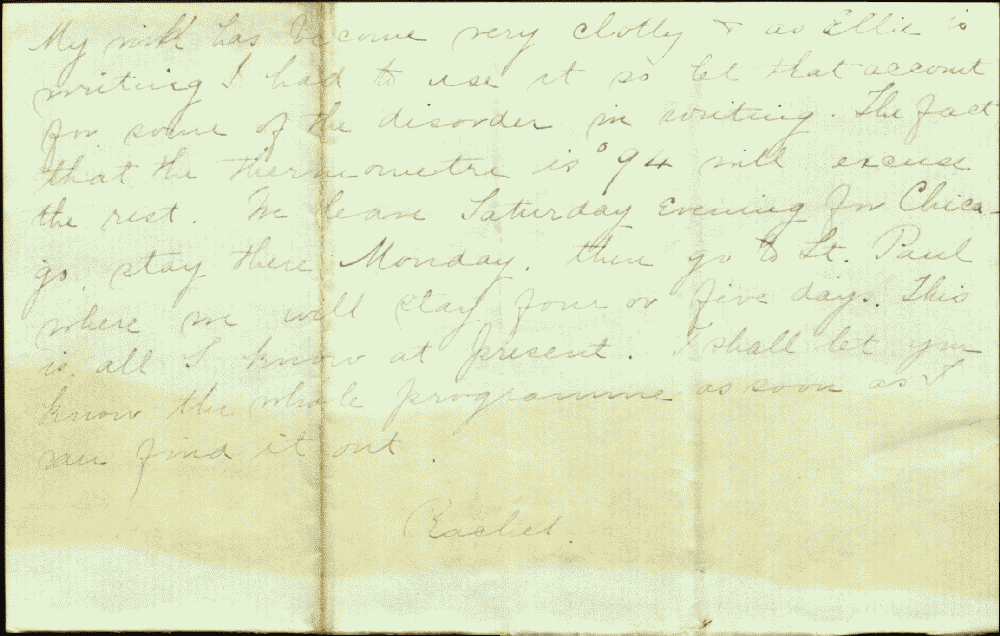 My milk has become very clotty & as Ellie is
writing I had to use it so let that account
for some of the disorder in writing. The fact
that the thermometre is °94 will excuse
the rest. We leave Saturday Evening for Chica-
go, stay there Monday, then go to St. Paul
where we will stay four or five days. This
is all I know at present. I shall let you
know the whole programme as soon as I
can find it out.
Rachel.